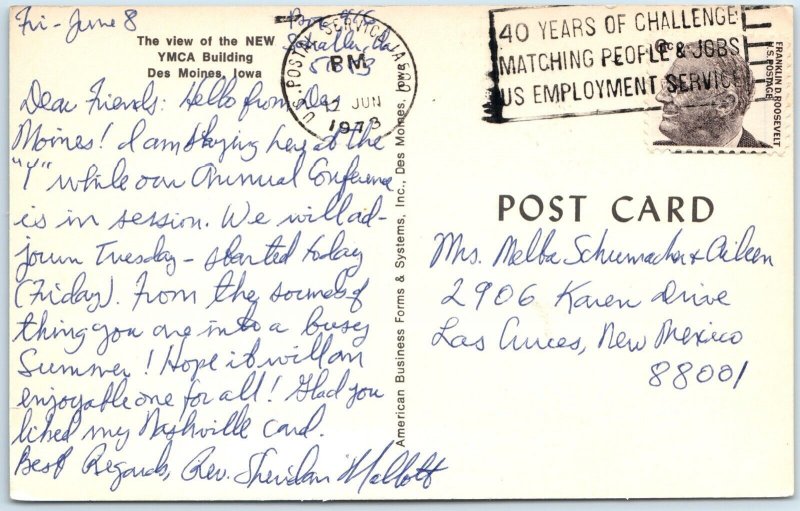 Fri - June 8
The view of the NEW
YMCA Building
Des Moines, Iowa
Box
Schaller, Ia
Dear Friends: Hello from Des
Moines! I am staying here at the
"Y" while our Annual Conference
is in session. We will ad-
journ Tuesday - started today
(Friday). From the sounds of
thing you are in to a busy
Summer! Hope it will an
enjoyable one for all! Glad you
liked my Nashville card.
Best Regards, Rev. Sheridan Mallott
American Business Forms & Systems, Inc., Des Moines, Iowa
U.S. POSTAL SERVICE, IA 500
PM
JUN
1973
40 YEARS OF CHALLENGE
MATCHING PEOPLE & JOBS
US EMPLOYMENT SERVICE
FRANKLIN D. ROOSEVELT
U.S. POSTAGE
POST CARD
Mrs. Melba Schumacher + Aileen
2906 Karen Drive
Las Cruces, New Mexico
88001